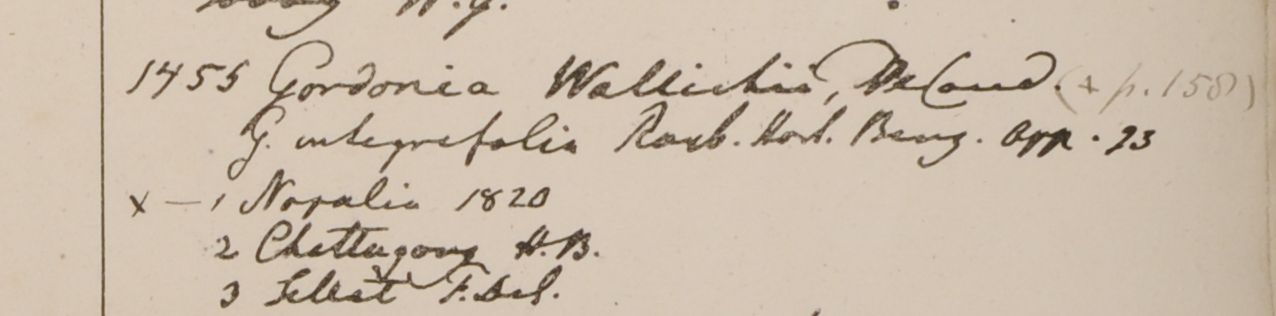 H. g.
1455 Gordonia Wallichii, DeCand. (+ p. 158)
G. integrefolia Roxb. Hort. Beng. App. 23
x — 1 Napalia 1820
2 Chattagong H.B.
3 Sillet F.deS.